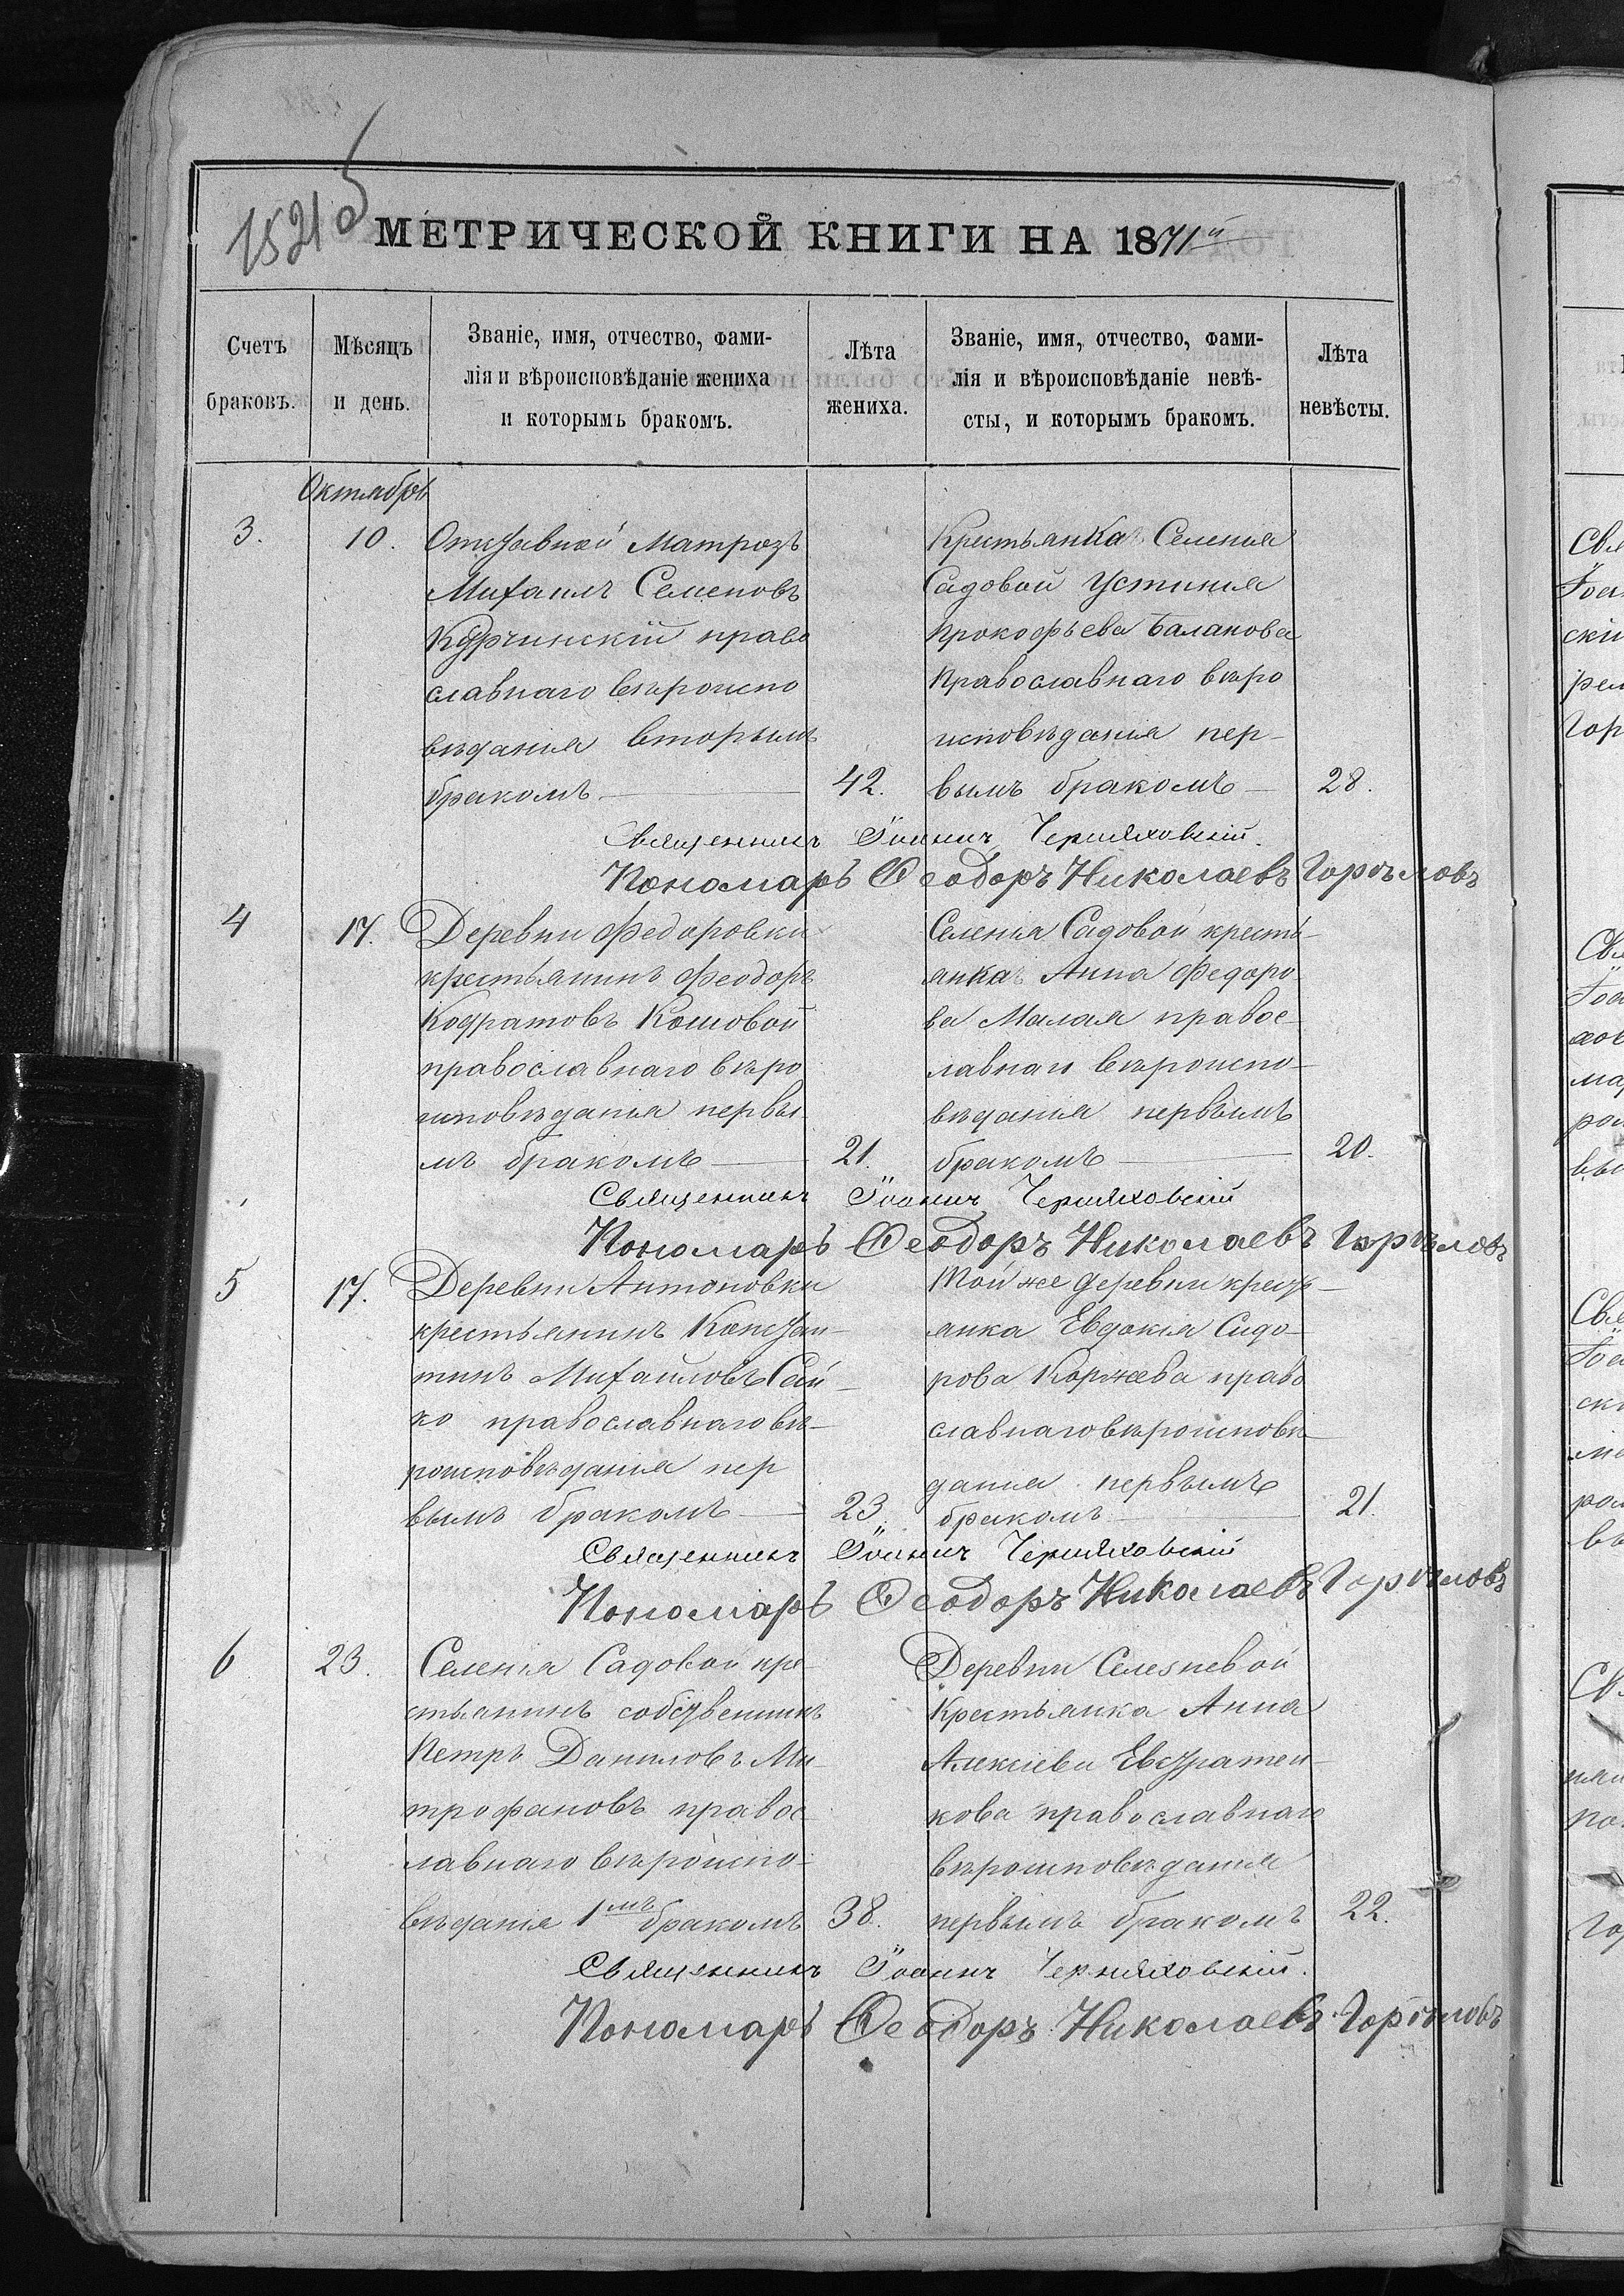 1521об
МЕТРИЧЕСКОЙ КНИГИ НА 1871й
Счетъ браковъ.
Мѣсяцъ и день.
Званіе, имя, отчество, фами-
лія и вѣроисповѣданіе жениха
и которымъ бракомъ.
Лѣта жениха.
Званіе, имя, отчество, фами-
лія и вѣроисповѣданіе невѣ-
сты, и которымъ бракомъ.
Лѣта невѣсты.
Октябрь
3. 10.
Отставной Матрозъ
Михаилъ Семеновъ
право
славнаго вѣроиспо
вѣданія вторымъ
бракомъ 42.
Крестьянка Селенія
Садовой Устинія
Прокофьева Баланова
Православнаго вѣро
исповѣданія пер-
вымъ бракомъ 28.
Священникъ Іоаннъ Черняховскій.
Пономарь Ѳеодоръ Николаевъ
4 17.
Деревни Федоровки
крестьянинъ Феодоръ
Кодратовъ Кошовой
православнаго вѣро
исповѣданія первы
мъ бракомъ 21.
Селенія Садовой кресть-
янка Анна Федоро
ва Малая правос-
лавнаго вѣроиспо-
вѣданія первымъ
бракомъ 20.
Священникъ Іоаннъ Черняховскій
Пономарь Ѳеодоръ Николаевъ
5 17.
Деревни Антоновки
крестьянинъ Констан-
тинъ Михаиловъ Сай-
ко православнаго вѣ-
роисповѣданія пер
вымъ бракомъ 23.
Той же деревни крест-
янка Евдокія Сидо-
рова Коржева право
славнаго вѣроисповѣ-
данія первымъ
бракомъ 21.
Священникъ Іоаннъ Черняховскій
Пономарь Ѳеодоръ Николаевъ
6 23.
Селенія Садовой кре-
стьянинъ собственникъ
Петръ Даниловъ Ми-
трофановъ правос-
лавнаго вѣроиспо-
вѣданія 1мъ бракомъ 38.
Деревни Селезневой
Крестьянка Анна
Алексіева Евстратен-
кова православнаго
вѣроисповѣданія
первымъ бракомъ 22.
Священникъ Іоаннъ Черняховскій.
Пономарь Ѳеодоръ Николаевъ